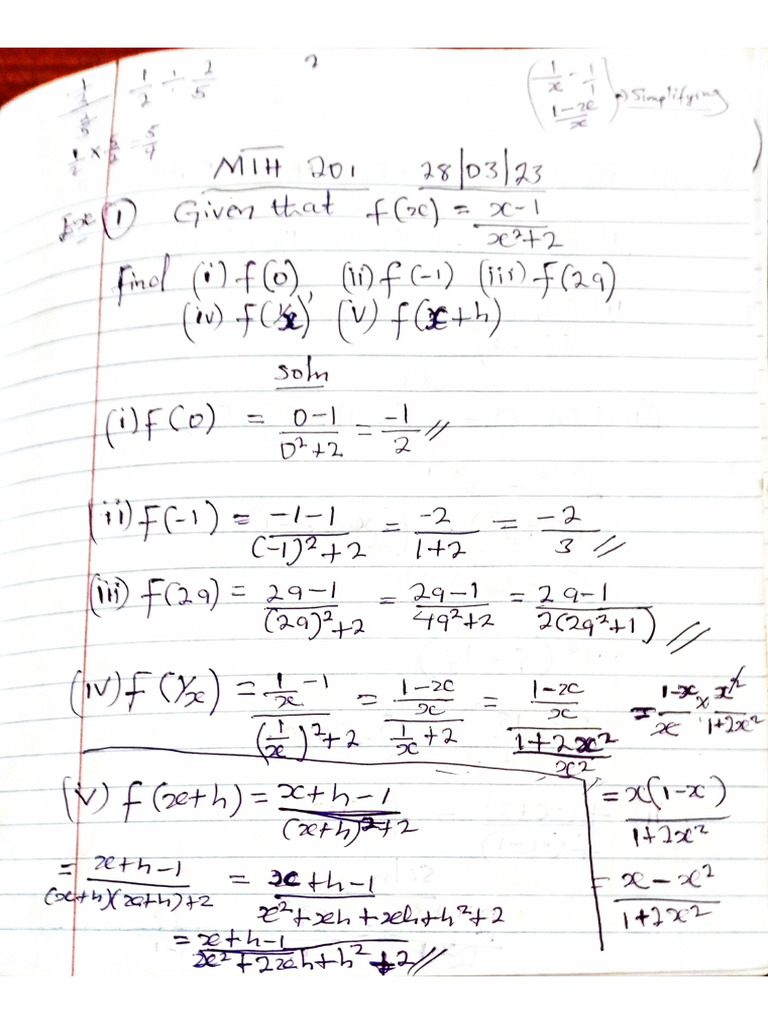 2
1/2 ÷ 2/5
1/2 × 5/2 = 5/4
(1/x - 1/1
(1-x)/x) → Simplifying
MTH 201 28/03/23
Ex ① Given that f(x) = (x-1)/(x²+2)
find (i) f(0), (ii) f(-1) (iii) f(2a)
(iv) f(1/x) (v) f(x+h)
soln
(i) f(0) = (0-1)/(0²+2) = -1/2 //
(ii) f(-1) = (-1-1)/((-1)²+2) = -2/(1+2) = -2/3 //
(iii) f(2a) = (2a-1)/((2a)²+2) = (2a-1)/(4a²+2) = (2a-1)/(2(2a²+1)) //
(iv) f(1/x) = (1/x -1)/((1/x)²+2) = ((1-x)/x)/(1/x +2) = ((1-x)/x)/((1+2x²)/x²) = (1-x)/x × x²/(1+2x²)
= x(1-x)/(1+2x²)
= (x-x²)/(1+2x²)
(v) f(x+h) = (x+h-1)/((x+h)²+2)
= (x+h-1)/((x+h)(x+h)+2) = (x+h-1)/(x²+xh+xh+h²+2)
= (x+h-1)/(x²+2xh+h²+2) //